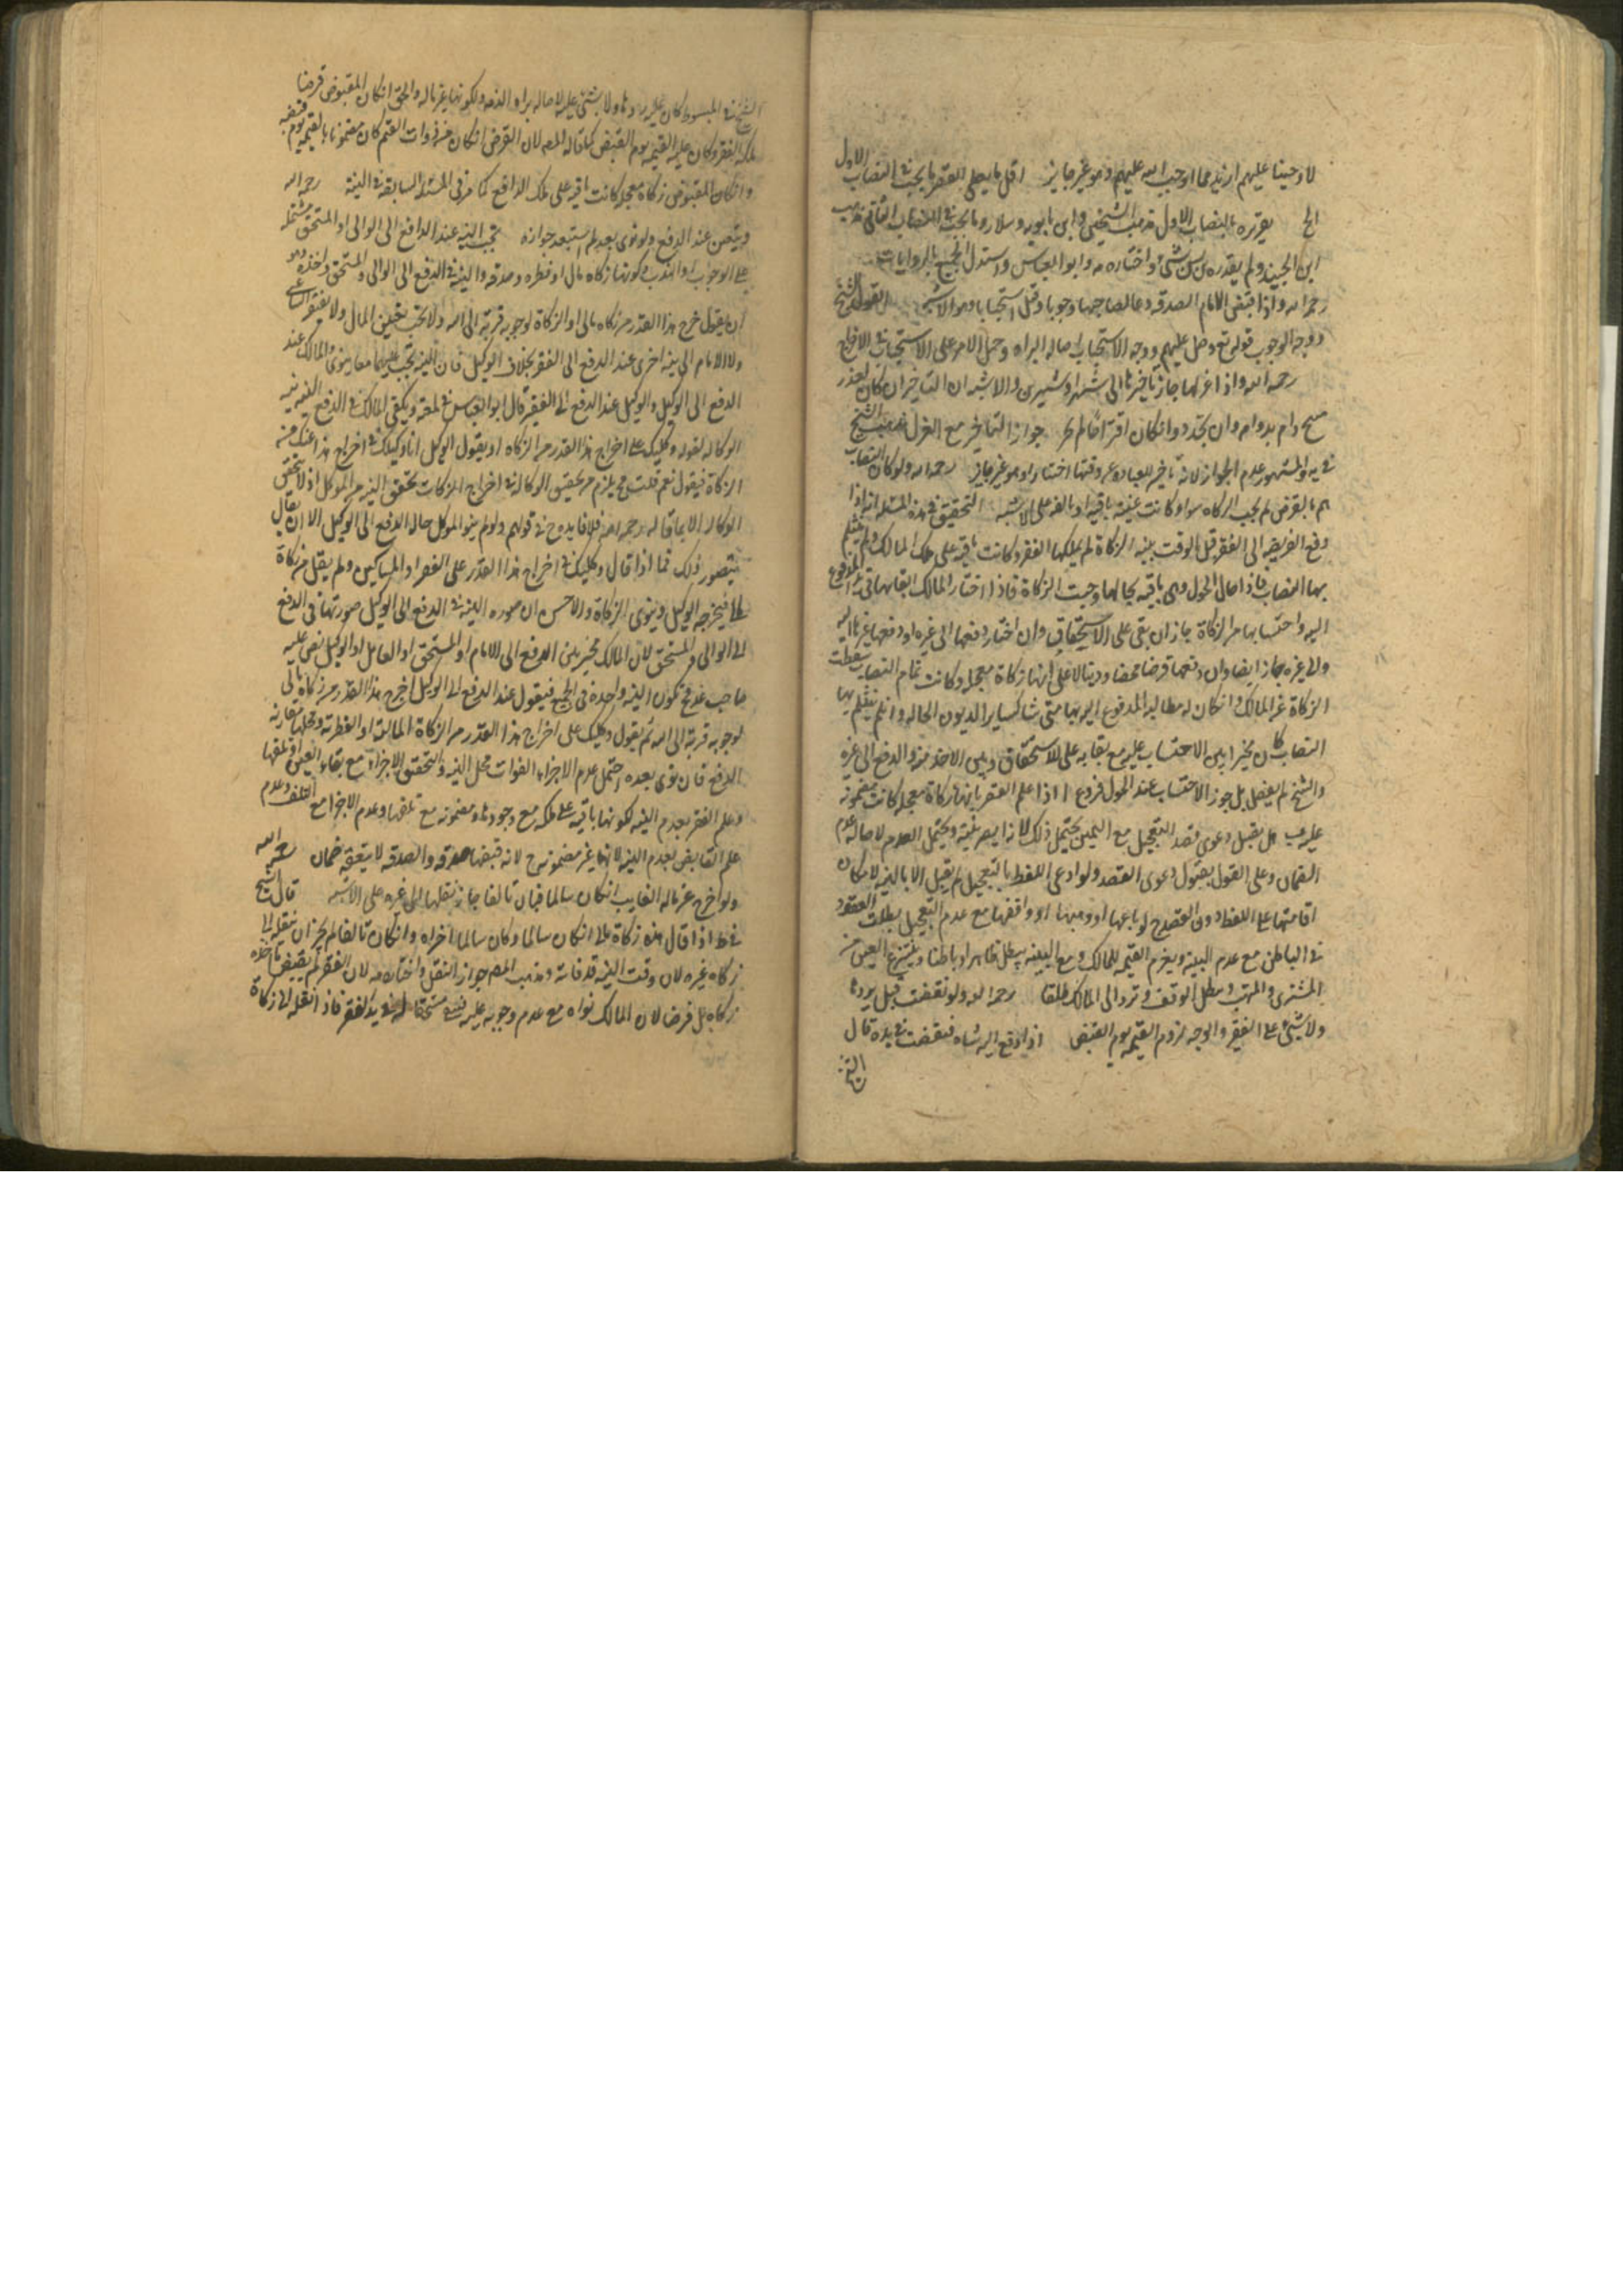 لاوجبنا عليهم ازيد مما اوجب الله عليهم وهو غير جايز اقل ما يعطى الفقير ما يجب في النصاب الاول
الخ يقديره بالنصاب الاول مذهب الشيخين وابن بابويه وسلار وما يجب في النصاب الثاني مذهب
ابن الجنيد ولم يقدره بشئ واختاره وابو العباس واستدل الجميع بالروايات
رحمه الله واذا قبض الامام الصدقه دعا لصاحبها وجوبا وقيل استحبابا وهو الاشبه القول للشيخ
ووجه الوجوب قوله تع وصل عليهم ووجه الاستحباب اصاله البراه وحمل الامر على الاستحباب
رحمه الله واذا عزلها جاز تاخيرها الى شهر او شهرين والاشبه ان التاخير ان كان لعذر
دام بدوامه وان تجدد وان كان اقتراحا لم يجز جواز التاخير مع العزل مذهب الشيخ
في يه والمشهور عدم الجواز لانه تاخير للعباده عن وقتها اختيارا وهو غير جايز رحمه الله ولو كان النصاب
يتم بالقرض لم تجب الزكاه سواء كانت عينه باقيه او تالفه على الاشبه التحقيق في هذه المسئله انه اذا
دفع الفريضه الى الفقير قبل الوقت بنيه الزكاة لم يملكها الفقير وكانت باقيه على ملك المالك ولم ينثلم
بها النصاب فاذا حال الحول وهي باقيه بحالها وجبت الزكاة فاذا اختار المالك ابقائها في يد المدفوع
اليه واحتسابها من الزكاة جاز ان بقى على الاستحقاق وان اختار دفعها الى غيره او دفع غيرها اليه
والى غيره جاز ايضا وان دفعها قرضا محضا ودينا لا على انها زكاة معجله وكانت تمام النصاب سقطت
الزكاة عن المالك وان كان له مطالبه المدفوع اليه بها متى شا كساير الديون الحاله وان لم ينثلم بها
النصاب كان مخيرا بين الاحتساب عليه مع بقايه على الاستحقاق وبين الاخذ منه والدفع الى غيره
والشيخ لم يفصل بل جوز الاحتساب عند الحول فروع ا اذا علم الفقير بانها زكاة معجله كانت مضمونه
عليه ب هل يقبل دعوى قصد التعجيل مع اليمين يحتمل ذلك لانه ابصر بنيته ويحتمل العدم لاصاله عدم
الضمان وعلى القول بقبول دعوى القصد ولو ادعى اللفظ بالتعجيل لم يقبل الا بالبينه لامكان
اقامتها على اللفظ دون القصد ج لو باعها او وهبها او وقفها مع عدم التعجيل بطلت العقود
في الباطن مع عدم البينه ويغرم القيمه للمالك ومع البينه يبطل ظاهرا وباطنا وينتزع العين من
المشترى والمتهب ويبطل الوقف وترد الى المالك مطلقا رحمه الله ولو نقصت قيل يردها
ولا شئ على الفقير والوجه لزوم القيمه يوم القبض اذا دفع اليه شاه فنقصت في يده قال
الشيخ
الشيخ في المبسوط كان عليه ردها ولا شئ عليه لاصاله براه الذمه ولكونها غير ماله والحق ان كان المقبوض قرضا
ملكه الفقير وكان عليه القيمه يوم القبض كما قاله المص لان القرض ان كان من ذوات القيم كان مضمونا بالقيمه يوم قبضه
وان كان المقبوض زكاة معجله كانت باقيه على ملك الدافع كما مر في المسئله السابقه في النية رحمه الله
ويتعين عند الدفع ولو نوى بعده لم استبعد جوازه تجب النيه عند الدافع الى الوالى او المستحق مشتمله
على الوجوب او الندب وكونها زكاه مال او فطره وصدقه والنيه في الدفع الى الوالى والمستحق واحده وهو
ان يقول اخرج هذا القدر من زكاه مالى او الزكاة لوجوبه قربة الى الله ولا يجب تعيين المال ولا يفتقر الساعى
ولا الامام الى نيه اخرى عند الدفع الى الفقير بخلاف الوكيل فان النيه تجب عليهما معا ينوى المالك عند
الدفع الى الوكيل والوكيل عند الدفع الى الفقير قال ابو العباس في المهذب ويكفى المالك في الدفع اليه نيه
الوكاله لقوله وكلتك على اخراج هذا القدر من الزكاه او يقول الوكيل انا وكيلك في اخراج هذا عنك من
الزكاة فيقول نعم قلت يلزم من تحقيق الوكاله في اخراج الزكات تحقق النيه من الموكل اذ لا تتحقق
الوكاله الا بما قاله رحمه الله فلا فايده ح في قولهم ولو لم ينو الموكل حاله الدفع الى الوكيل الا ان يقال
يتصور ذلك فيما اذا قال وكلتك في اخراج هذا القدر على الفقرا والمساكين ولم يقل من زكاة
مالى فيخرجه الوكيل وينوى الزكاة والاحسن ان صوره النيه في الدفع الى الوكيل صورتها في الدفع
الى الوالى والمستحق لان المالك مخير بين الدفع الى الامام او المستحق او العامل او الوكيل نص عليه
صاحب عد فح تكون النيه واحدة في الجميع فيقول عند الدفع الى الوكيل اخرج هذا القدر من زكاة مالى
لوجوبه قربة الى الله ثم يقول وكلتك على اخراج هذا القدر من الزكاة الماليه او الفطريه ومحلها مقارنه
الدفع فان نوى بعده احتمل عدم الاجزاء الفوات محل النيه والتحقق الاجزاء مع بقاء العين او تلفها
وعلم الفقير بعدم النيه لكونها باقيه على ملكه مع وجودها ومضمونه مع تلفها وعدم الاجزا مع التلف وعدم
علم القابض بعدم النيه لانها غير مضمونه ح لانه قبضها صدقه والصدقه لا يتعقبه ضمان رحمه الله
ولو اخرج عن ماله الغايب ان كان سالما فبان تالفا جاز نقلها الى غيره على الاشبه قال الشيخ
في ط اذا قال هذه زكاة مالى ان كان سالما وكان سالما اجزاه وان كان تالفا لم يجز ان ينقله الى
زكاه غيره لان وقت النيه قد فاتت ومذهب المص جواز النقل واختاره لان الفقير لم يقبض
زكاه بل قرضا لان المالك نواه مع عدم وجوبه عليه في يد الفقير فاذا نقله الى زكاة